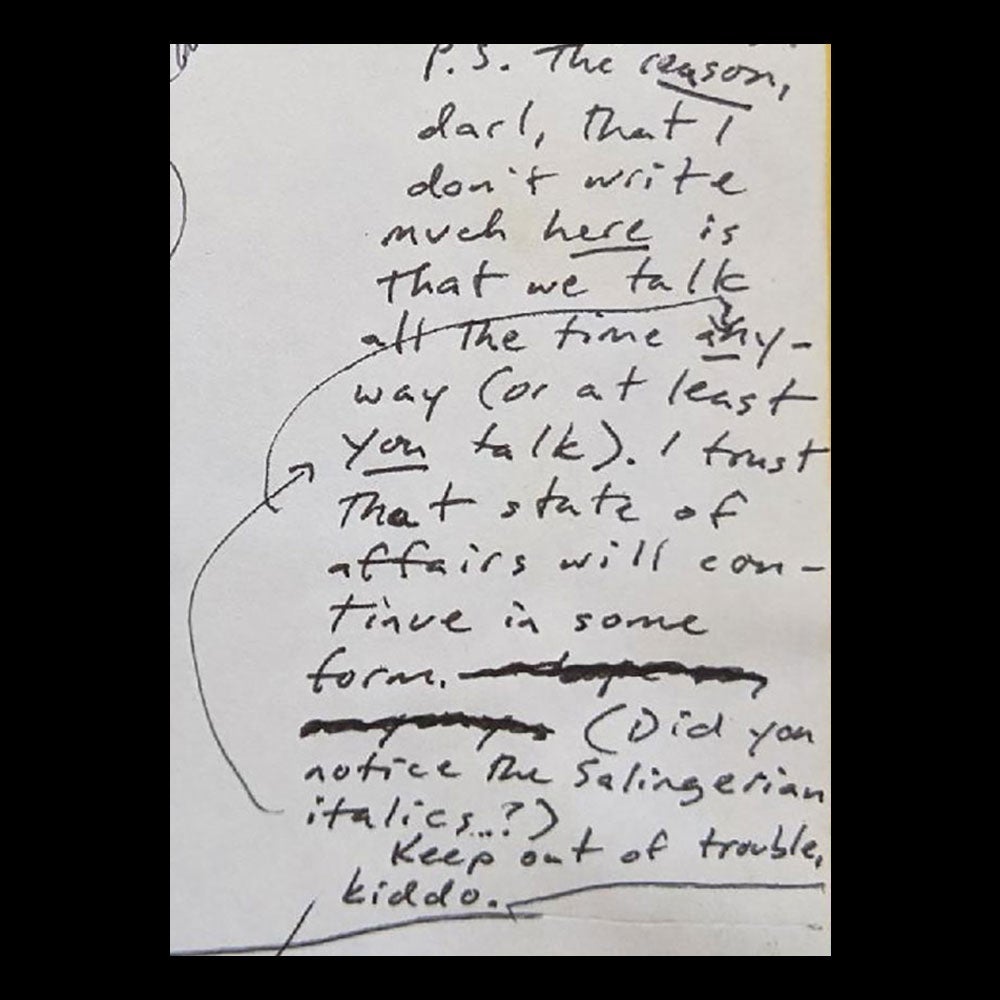 P.S. The reason,
darl, that I
don't write
much here is
that we talk
all the time any-
way (or at least
you talk). I trust
that state of
affairs will con-
tinue in some
form.
(Did you
notice the Salingerian
italics...?)
Keep out of trouble,
kiddo.